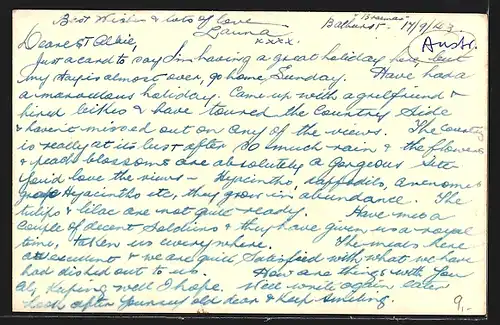 Best Wishes & lots of love
Launa
xxxx.
"Braemar"
Bathurst. 17/9/43
Austr.
Dearest Elbie,
Just a card to say I'm having a great holiday here, but
my stay is almost over, go home Sunday. Have had a
marvellous holiday. Came up with a girlfriend &
hired bikes & have toured the Country Side
& haven't missed out on any of the views. The country
is really at its best after so much rain & the flowers
& peach blossoms are absolutely a gorgeous site
You'd love the views - Hyacinths, daffodils, anenomes
grape Hyacinths etc, they grow in abundance. The
tulips & lilac are not quite ready. Have met a
couple of decent Soldiers & they have given us a royal
time, taken us everywhere. The meals here
are excellent & we are quite satisfied with what we have
had dished out to us. How are things with you
all, keeping well I hope. Will write again later
Look after yourself old dear & keep smiling.
9,-